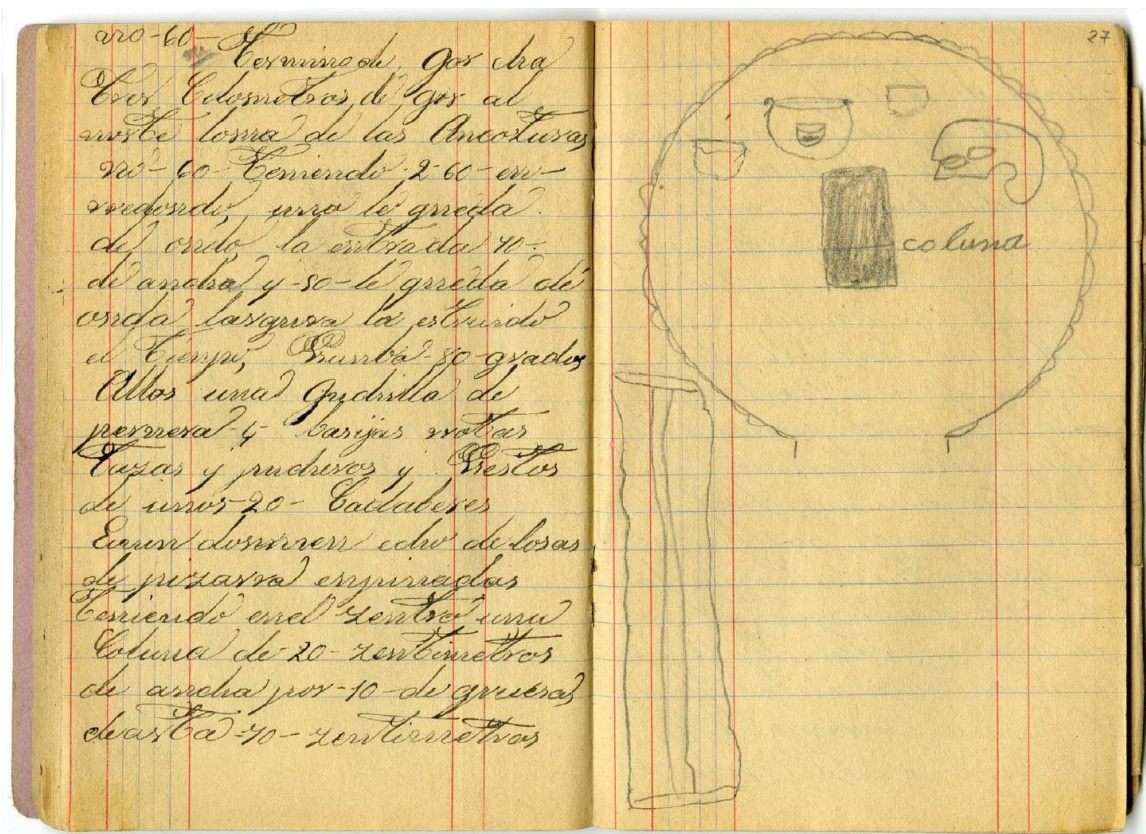 nro-60-
Termino de, Gor cha
tros Cilometros, de, gor al
norte loma de las Angosturas
nrō-60-Teniendo-2-60-en-
rredondo, uno le queda
de ondo, la entrada 40-
de ancha y-50-le queda de
onda, la
el tiempo, Rumbo-80-grados
Allos una Qudrilla de
perrera-4 basijas rrotas
tazas y puchevos y Restos
de unos-20-Cadaberes
Es un dosmen echo de losas
de pizarra enpinadas
teniendo enel zentro una
Coluna de-20-zentimetros
de ancha por-10-de gruesas
de asta-70-zentimetros
27
coluna